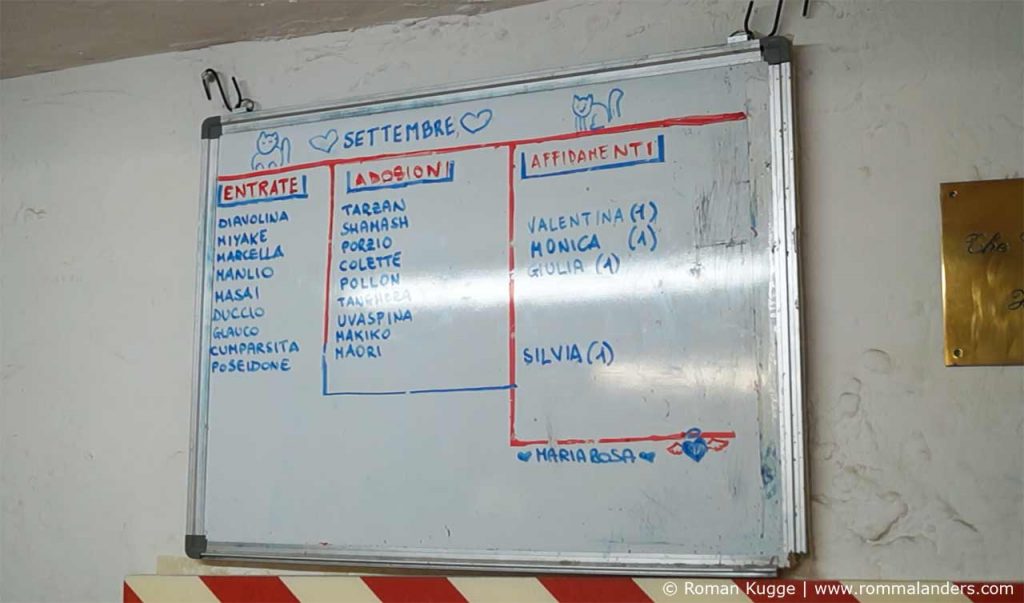 SETTEMBRE
ENTRATE
DIAVOLINA
MIYAKE
MARCELLA
MANLIO
MASAI
DUCCIO
GLAUCO
CUMPARSITA
POSEIDONE
ADOZIONI
TARZAN
SHAMASH
PORZIO
COLETTE
POLLON
TANGHERA
UVASPINA
MAKIKO
MAORI
AFFIDAMENTI
VALENTINA (1)
MONICA (1)
GIULIA (1)
SILVIA (1)
MARIAROSA
The
© Roman Kugge | www.rommalanders.com